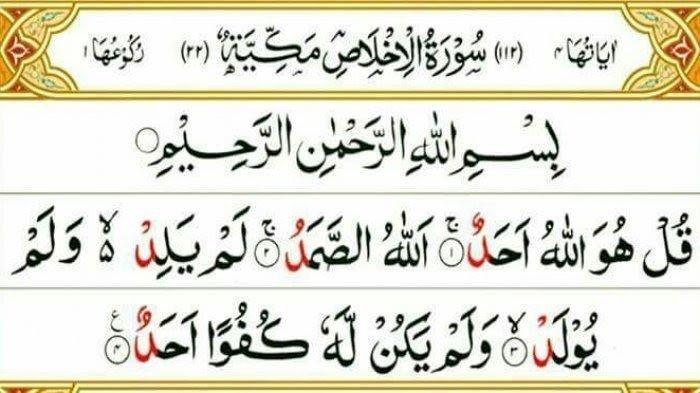 اٰيَاتُهَا ٤ (١١٢) سُوْرَةُ الْاِخْلَاصِ مَكِّيَّةٌ (٢٢) رُكُوْعُهَا ١
بِسْمِ اللّٰهِ الرَّحْمٰنِ الرَّحِيْمِ
قُلْ هُوَ اللّٰهُ اَحَدٌ ۚ ١ اَللّٰهُ الصَّمَدُ ۚ ٢ لَمْ يَلِدْ ۙ۵ وَلَمْ
يُوْلَدْ ۙ ٣ وَلَمْ يَكُنْ لَّهٗ كُفُوًا اَحَدٌ ع ٤